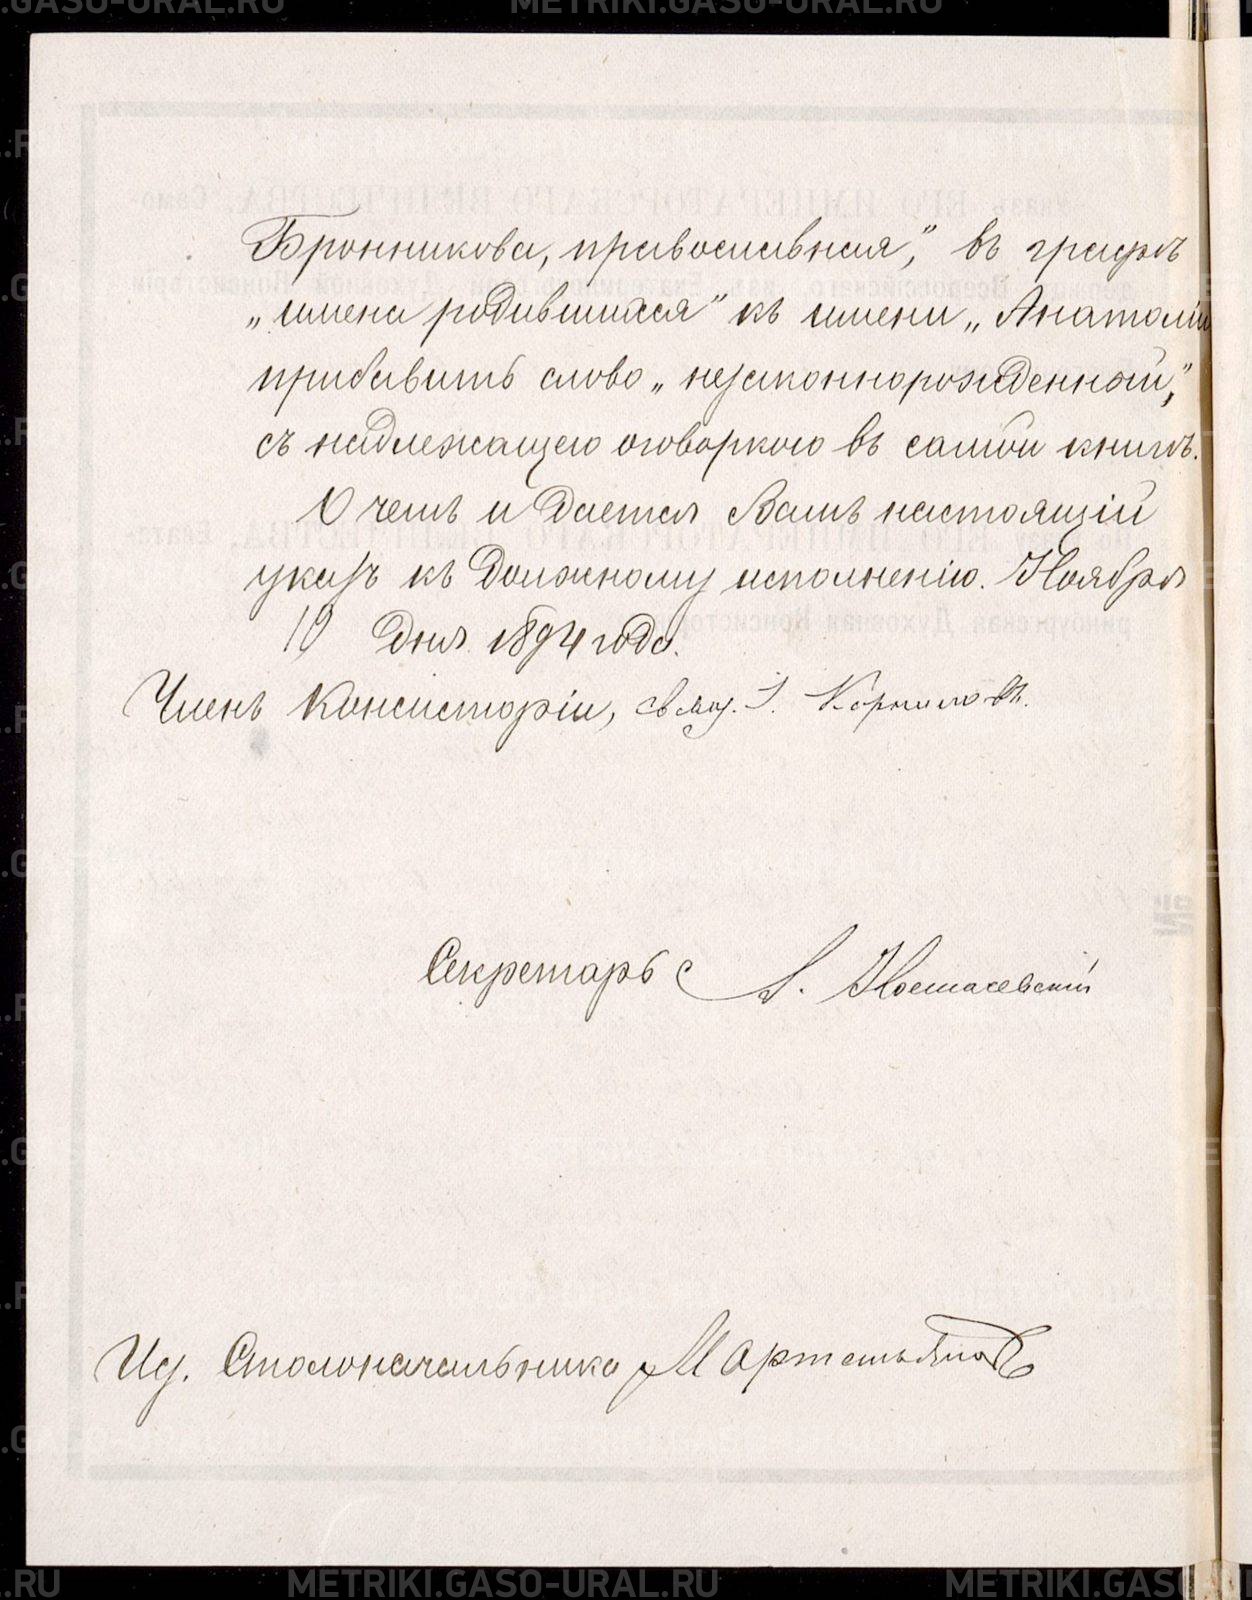 Бронникова, православная," въ графѣ
„имена родившихся" къ имени „Анатолій
прибавить слово „незаконнорожденный,"
съ надлежащею оговоркою въ самой книгѣ.
О чемъ и дается Вамъ настоящій
указъ къ должному исполненію. Ноября
19 дня 1894 года.
Членъ Консисторіи, свящ. І. Корниловъ.
Секретарь А.
Ид. Столоначальника Мартемьяновъ
METRIKI.GASO-URAL.RU